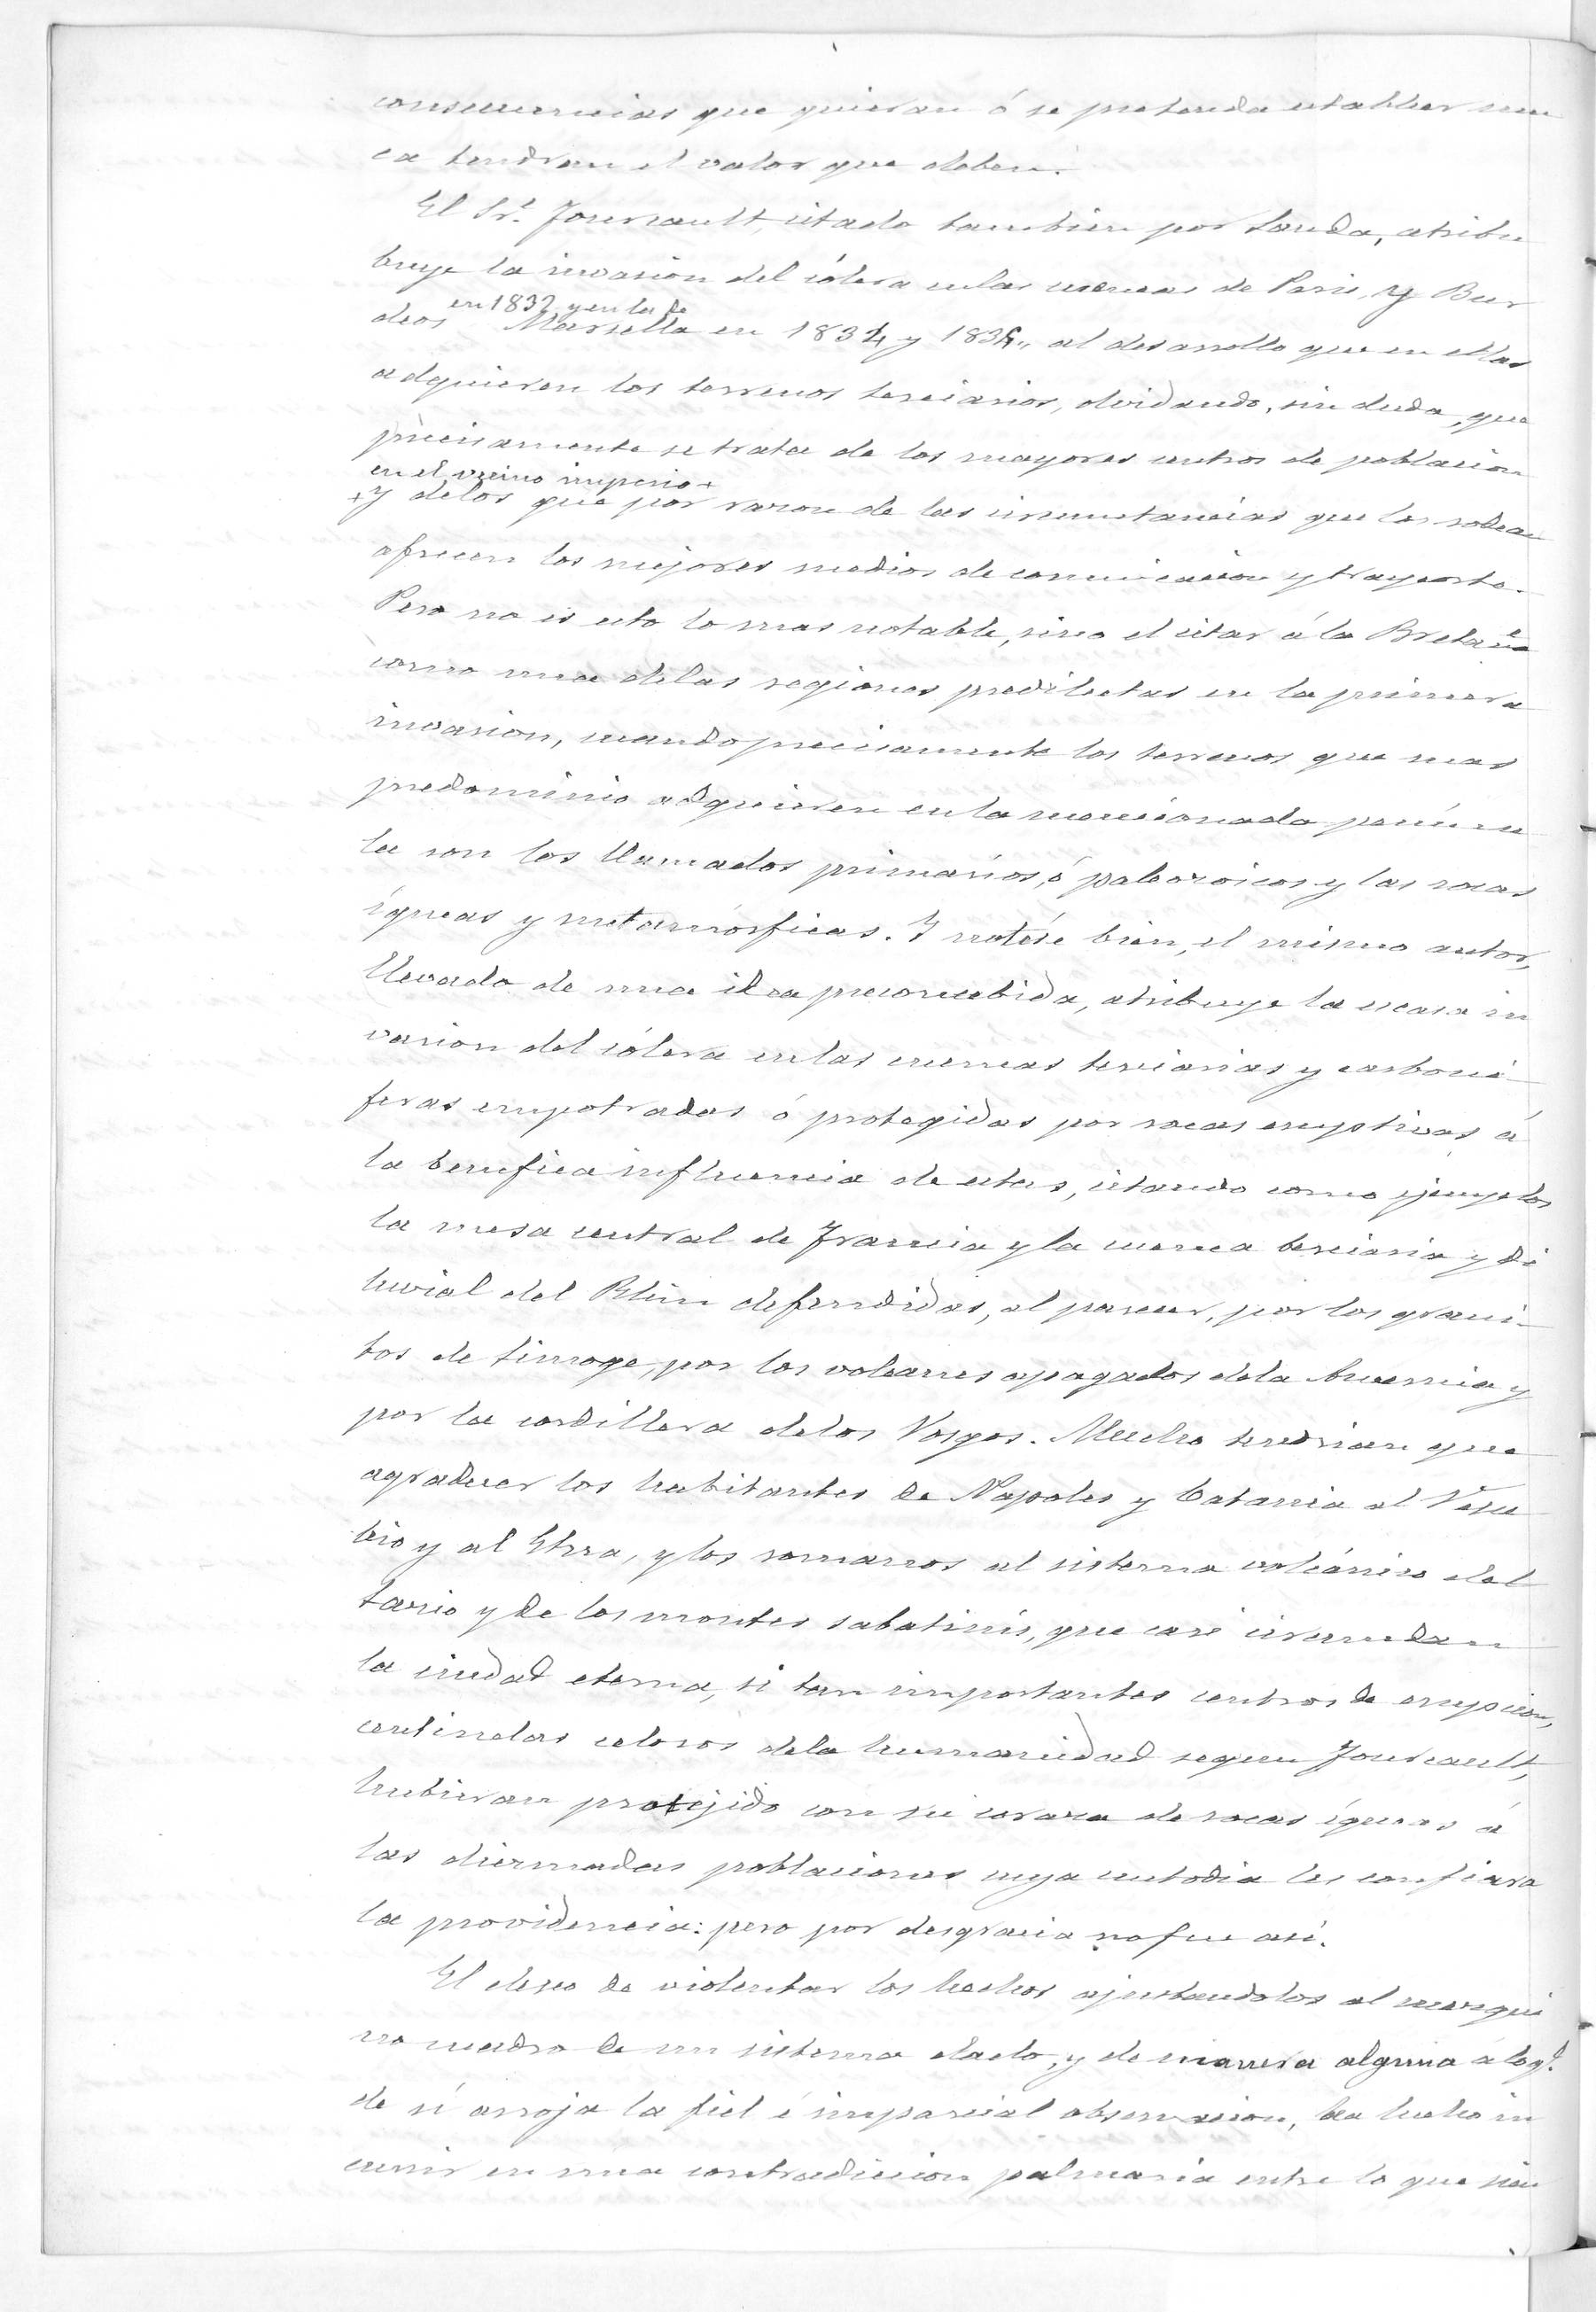 consecuencias que quieran ó se pretenda establecer nun
ca tendran el valor que deben.
El Sr. Fourcault, citado tambien por Landa, atribu
buye la invasion del cólera en las cuencas de Paris, y Bur
en 1832 y en la de
deos Marsella en 1834 y 1835, al desarrollo que en ellas
adquieren los terrenos terciarios, olvidando, sin duda, que
precisamente se trata de los mayores centros de poblacion
en el vecino imperio +
+ y de los que por razon de las circunstancias que los rodean
ofrecen los mejores medios de comunicacion y trayecto.
Pero no es esto lo mas notable, sino el citar á la Bretaña
como una de las regiones predilectas en la primera
invasion, cuando precisamente los terrenos que mas
predominio adquieren en la mencionada penínsu
la son los llamados primarios, ó paleozoicos y las rocas
ígneas y metamórficas. Y notése bien, el mismo autor,
llevado de una idea preconcebida, atribuye la escasa in
vasion del cólera en las cuencas terciarias y carboni-
feras empotradas ó protegidas por rocas eruptivas, á
la benefica influencia de estas, citando como ejemplos
la mesa central de Francia y la cuenca terciaria y di
luvial del Rhin defendidas, al parecer, por los grani-
tos de Limoge, por los volcanes apagados de la Auvernia y
por la cordillera de los Vosgos. Mucho tendrian que
agradecer los habitantes de Napoles y Catania al Vesu
bio y al Etna, y los romanos al sistema volcánico del
Lacio y de los montes sabatinis, que casi circundan
la ciudad eterna, si tan importantes centros de erupcion,
centinelas celosos de la humanidad segun Fourcault,
hubieran protejido con su coraza de rocas ígneas á
las diezmadas poblaciones cuya custodia les confiara
la providencia: pero por desgracia no fue asi.
El deseo de violentar los hechos ajustandolos al mezqui
no cuadro de un sistema dado, y de manera alguna á lo q.
de sí arroja la fiel é imparcial observacion, ha hecho in
currir en una contradiccion palmaria entre lo que sien